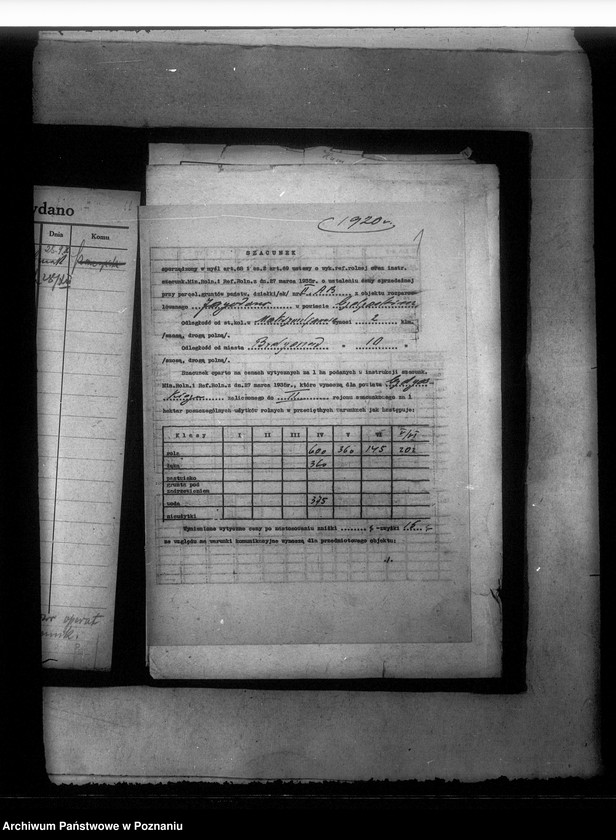 ydano
Dnia
Komu
1920 r.
SZACUNEK
sporządzony w myśl art.68 i cz.2 art.69 ustawy o wyk.ref.rolnej oraz instr.
szacunk.Min.Roln.i Ref.Roln.z dn.27 marca 1935r. o ustalaniu ceny sprzedażnej
przy parcel.gruntów państw. działki/ek/ nr z objektu rozparce-
lowanego w powiecie
Odległość od st.kol.w wynosi 2 klm.
/szosą, drogą polną/.
Odległość od miasta " 10 "
/szosą, drogą polną/.
Szacunek oparto na cenach wytycznych za 1 ha podanych w instrukcji szacunk.
Min.Roln.i Ref.Roln.z dn.27 marca 1935r., które wynoszą dla powiatu
zaliczonego do II rejonu szacunkowego za 1
hektar poszczególnych użytków rolnych w przeciętnych warunkach jak następuje:
Klasy I II III IV V VI V/VI
rola 600 360 145 202
łąka 360
pastwiska
grunta pod
zadrzewieniem
woda 375
nieużytki
Wymienione wytyczne ceny po zastosowaniu zniżki % -zwyżki
ze względu na warunki komunikacyjne wynoszą dla przedmiotowego objektu:
operat
Archiwum Państwowe w Poznaniu